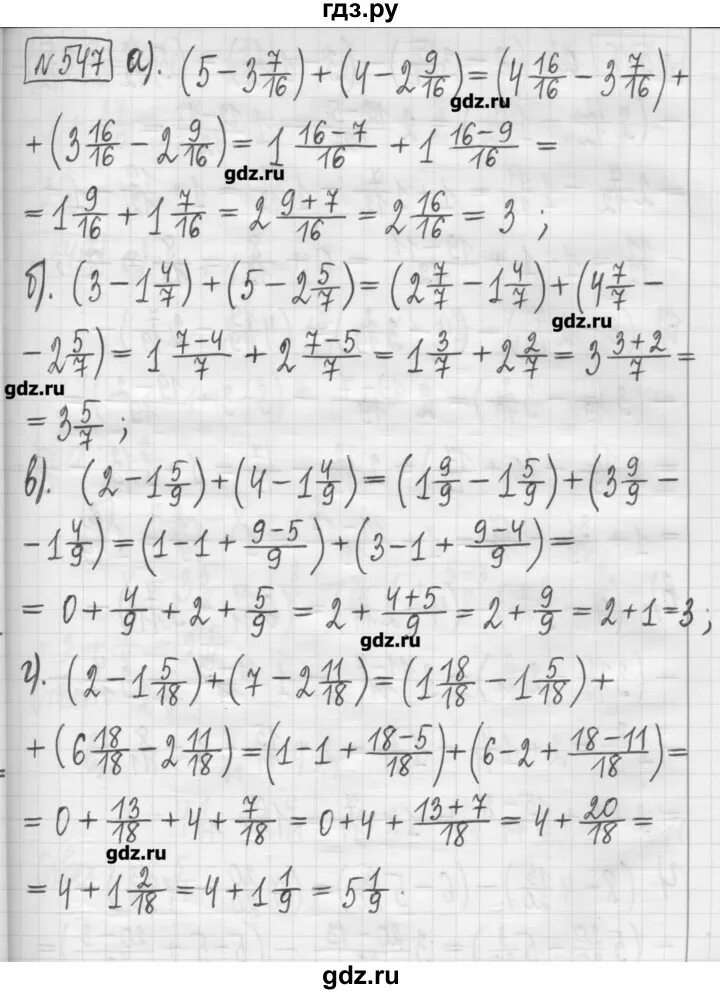 гдз.ру
№547 а). (5 − 3 7/16) + (4 − 2 9/16) = (4 16/16 − 3 7/16) +
gdz.ru
+ (3 16/16 − 2 9/16) = 1 (16−7)/16 + 1 (16−9)/16 =
gdz.ru
= 1 9/16 + 1 7/16 = 2 (9+7)/16 = 2 16/16 = 3 ;
б). (3 − 1 4/7) + (5 − 2 5/7) = (2 7/7 − 1 4/7) + (4 7/7 −
gdz.ru
− 2 5/7) = 1 (7−4)/7 + 2 (7−5)/7 = 1 3/7 + 2 2/7 = 3 (3+2)/7 =
gdz.ru
= 3 5/7 ;
в). (2 − 1 5/9) + (4 − 1 4/9) = (1 9/9 − 1 5/9) + (3 9/9 −
− 1 4/9) = (1 − 1 + (9−5)/9) + (3 − 1 + (9−4)/9) =
= 0 + 4/9 + 2 + 5/9 = 2 + (4+5)/9 = 2 + 9/9 = 2 + 1 = 3 ;
gdz.ru
г). (2 − 1 5/18) + (7 − 2 11/18) = (1 18/18 − 1 5/18) +
+ (6 18/18 − 2 11/18) = (1 − 1 + (18−5)/18) + (6 − 2 + (18−11)/18) =
= 0 + 13/18 + 4 + 7/18 = 0 + 4 + (13+7)/18 = 4 + 20/18 =
gdz.ru
= 4 + 1 2/18 = 4 + 1 1/9 = 5 1/9 .
gdz.ru